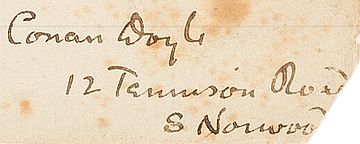 Conan Doyle
12 Tennison Road
S Norwood